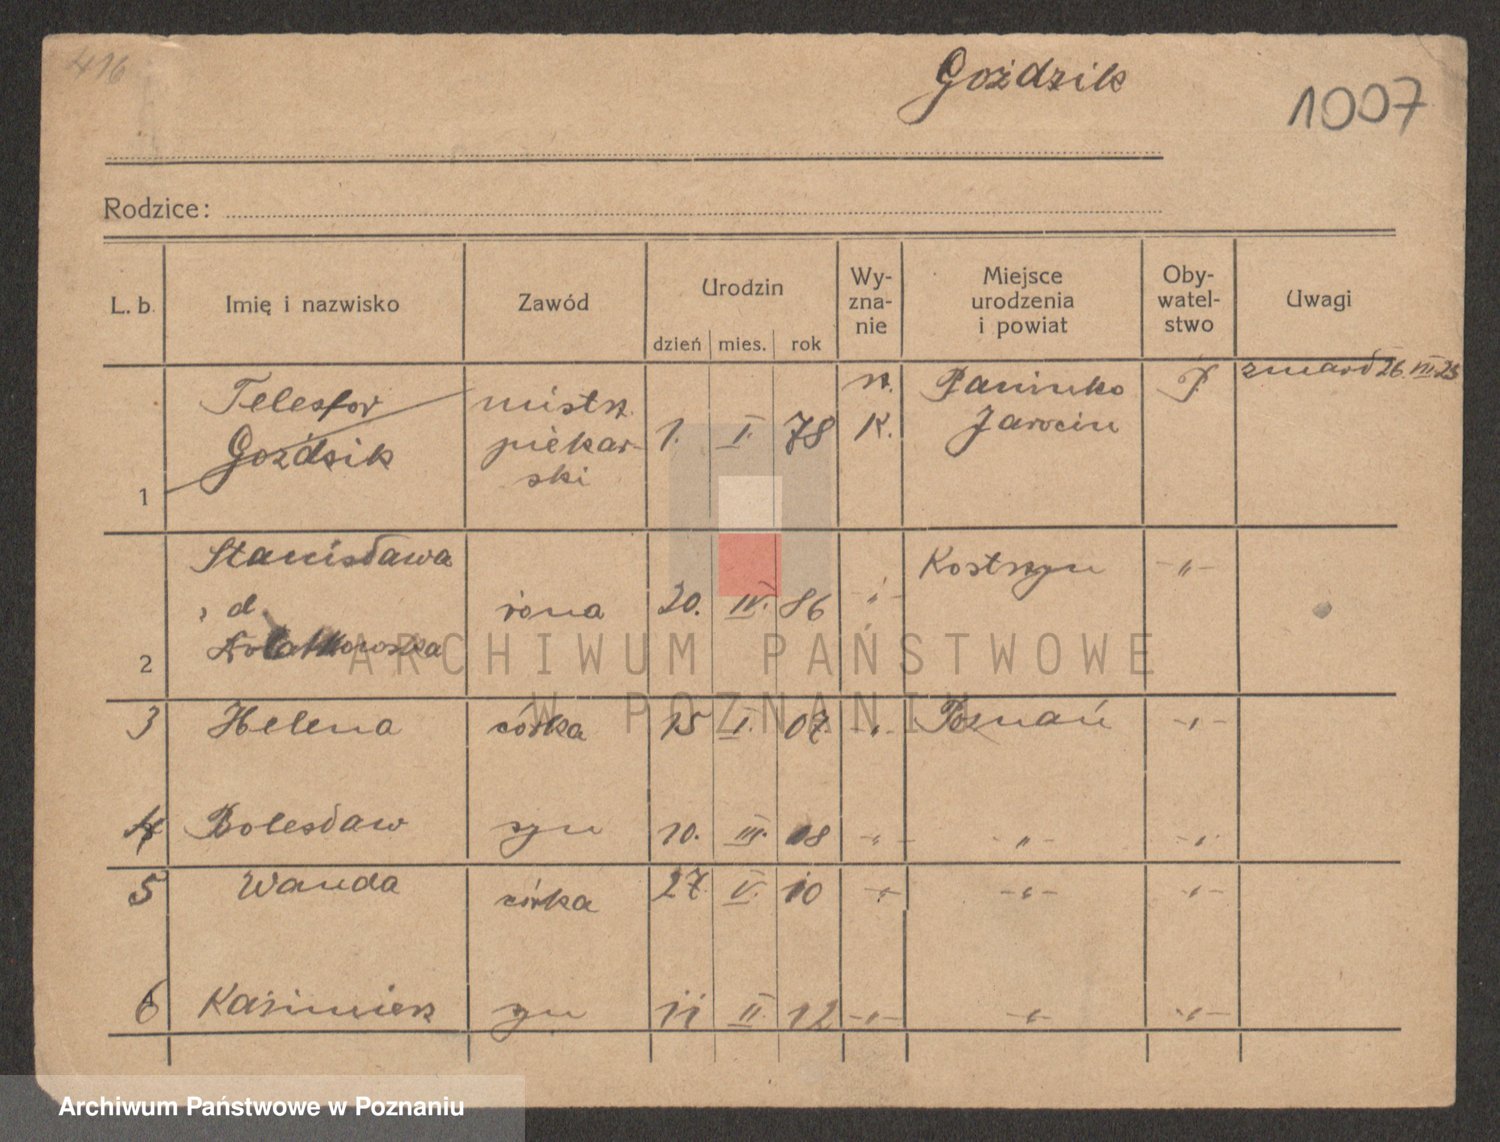 416
Goździk
1007
Rodzice:
L. b. Imię i nazwisko Zawód Urodzin dzień mies. rok Wyznanie Miejsce urodzenia i powiat Obywatelstwo Uwagi
1 Telesfor Goździk mistrz piekarski 1. I. 78 rz. K. Panienko Jarocin P zmarł 26. VII. 23
2 Stanisława żona 20. IV. 86 -"- Kostrzyn -"-
3 Helena córka 15 I. 07 -"- Poznań -"-
4 Bolesław syn 10. III. 08 -"- -"- -"-
5 Wanda córka 27. V. 10 -"- -"- -"-
6 Kaźimierz syn 11 II. 12 -"- -"- -"-
ARCHIWUM PAŃSTWOWE
W POZNANIU
Archiwum Państwowe w Poznaniu